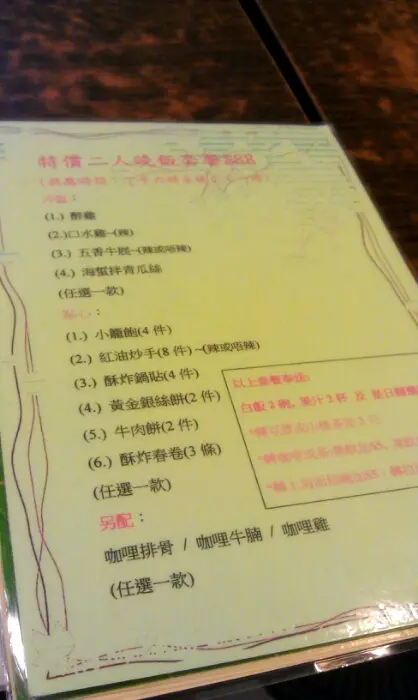 特價二人晚飯套餐$88
冷盤：
(1.) 醉雞
(2.)口水雞~(辣)
(3.) 五香牛𦟌~(辣或唔辣)
(4.) 海蜇拌青瓜絲
(任選一款)
點心：
(1.) 小籠飽(4 件)
(2.) 紅油炒手(8 件)~(辣或唔辣)
(3.) 酥炸鍋貼(4 件)
(4.) 黃金銀絲餅(2 件)
(5.) 牛肉餅(2 件)
(6.) 酥炸春卷(3 條)
(任選一款)
以上套餐奉送:
白飯 2 碗, 果汁 2 杯 及 是日糖
另配：
咖哩排骨 / 咖哩牛腩 / 咖哩雞
(任選一款)